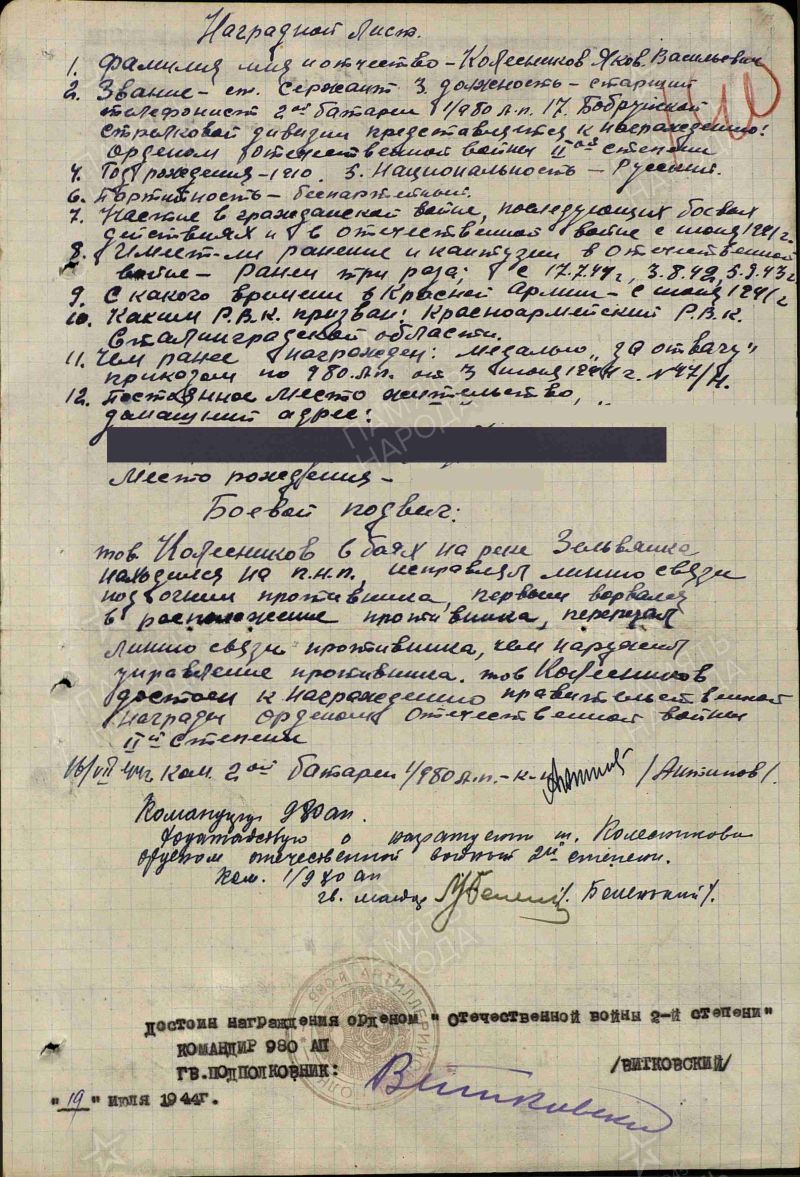 Наградной лист.
1. Фамилия имя и отчество – Колесников Яков Васильевич
2. Звание – ст. сержант 3. должность – старший
телефонист 2ой батареи 1/980 А.п. 17. Бобруйской
стрелковой дивизии представляется к награждению:
орденом отечественной войны IIой степени
4. Год рождения – 1910. 5. Национальность – Русский.
6. Партийность – беспартейный.
7. Участие в гражданской войне, последующих боевых
действиях и в отечественной войне с июня 1941 г.
8. Имеет-ли ранение и кантузии в отечественной
войне – Ранен три раза; с 17.7.41 г, 3.8.42, 5.9.43 г
9. С какого времени в Красной армии – с июня 1941 г
10. Каким Р.В.К. призван: Красноармейский Р.В.К.
Сталинградской области.
11. Чем ранее награжден: медалью „за отвагу"
приказом по 980 А.п. от 3 июня 1944 г. №47/Н.
12. Постоянное место жительство,
домашний адрес:
Место рождения –
Боевой подвиг:
тов Колесников в боях на реке Зельвянка
находился на п.н.п., исправлял линию связи
под огнем противника, первым ворвался
в расположение противника, перерезал
линию связи противника, чем нарушил
управление противника. тов Колесников
достоен к награждению правительственной
награды Орденом Отечественной войны
IIй степени
16/VII 44 г ком. 2ой батареи 1/980 А.п. – к-н /Антипов/.
Командиру 980 ап.
Ходатайствую о награждении т. Колесникова
орденом отечественной войны 2й степени.
Ком. 1/980 ап
гв. майор /. Беленький/.
980-й АРТИЛЛЕРИЙСКИЙ
ДОСТОИН НАГРАЖДЕНИЯ ОРДЕНОМ " ОТЕЧЕСТВЕННОЙ ВОЙНЫ 2-Й СТЕПЕНИ"
КОМАНДИР 980 АП
ГВ.ПОДПОЛКОВНИК: Витковский /ВИТКОВСКИЙ/
"19" ИЮЛЯ 1944Г.
ПАМЯТЬ НАРОДА